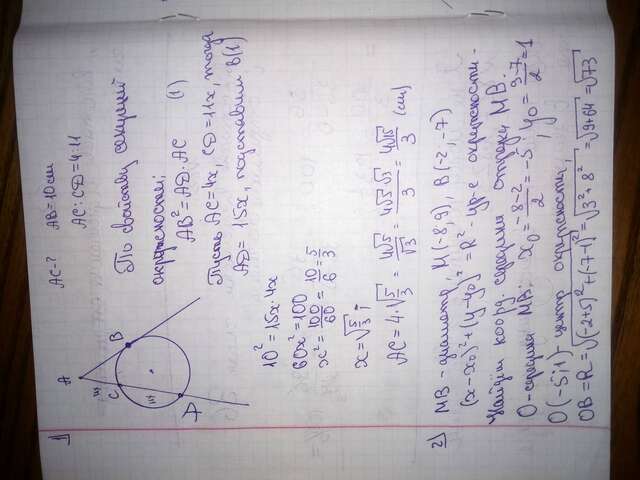 1)
A
B
C
D
AC-? AB=10см
AC:CD=4:11
По свойству секущей
окружности:
AB²=AD·AC (1)
Пусть AC=4x, CD=11x, тогда
AD=15x, подставим в (1)
10²=15x·4x
60x²=100
x²=100/60=10/6=5/3
x=√5/3;
AC=4·√5/3=4√5/√3=4√5√3/3=4√15/3 (см)
2) MB-диаметр, M(-8;9), B(-2;-7)
(x-x₀)²+(y-y₀)²=R²-ур-е окружности.
Найдём коорд. середины отрезка MB:
O-середина MB: x₀=-8-2/2=-5, y₀=9-7/2=1
O(-5;1)-центр окружности,
OB=R=√(-2+5)²+(-7-1)²=√3²+8²=√9+64=√73